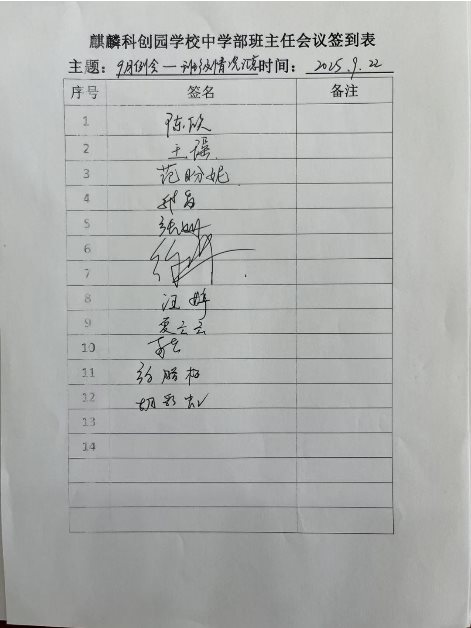 麒麟科创园学校中学部班主任会议签到表
主题：9月例会—班级情况汇总 时间：2025.9.22
序号 签名 备注
1 陈欣
2 王瑶
3 范盼妮
4
5 张姗
6
7
8 汪婷
9 夏云云
10
11
12 胡彩虹
13
14